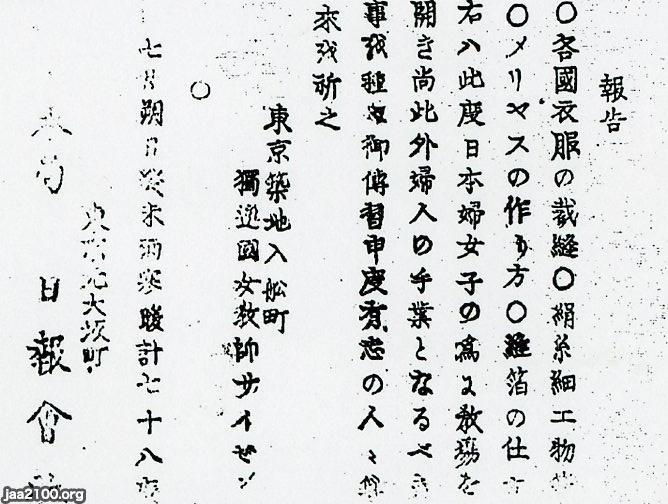 報告
〇各國衣服の裁縫〇絹糸細工物
〇メリヤスの作り方〇縫箔の仕方
右ハ此度日本婦女子の爲に教場を
開き尚此外婦人の手業となるべき
事我種々御傳習申度有志の人々
來我祈之
東京築地入舩町
獨逸國女教師サイゼン
〇
七月朔日癸未洒寒暖計七十八
東京元大坂町
本局 日報會社
jaa2100.org